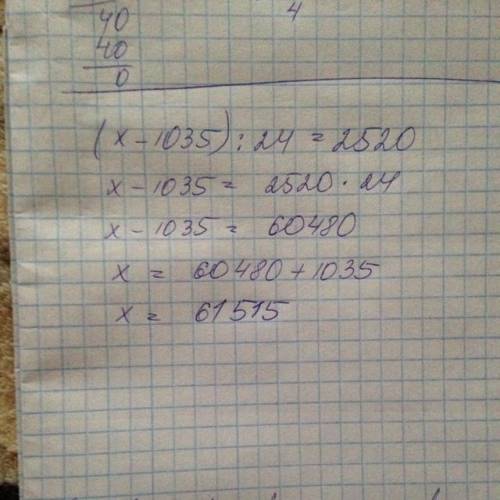 40
4
40
0
(x - 1035) : 24 = 2520
x - 1035 = 2520 · 24
x - 1035 = 60480
x = 60480 + 1035
x = 61515